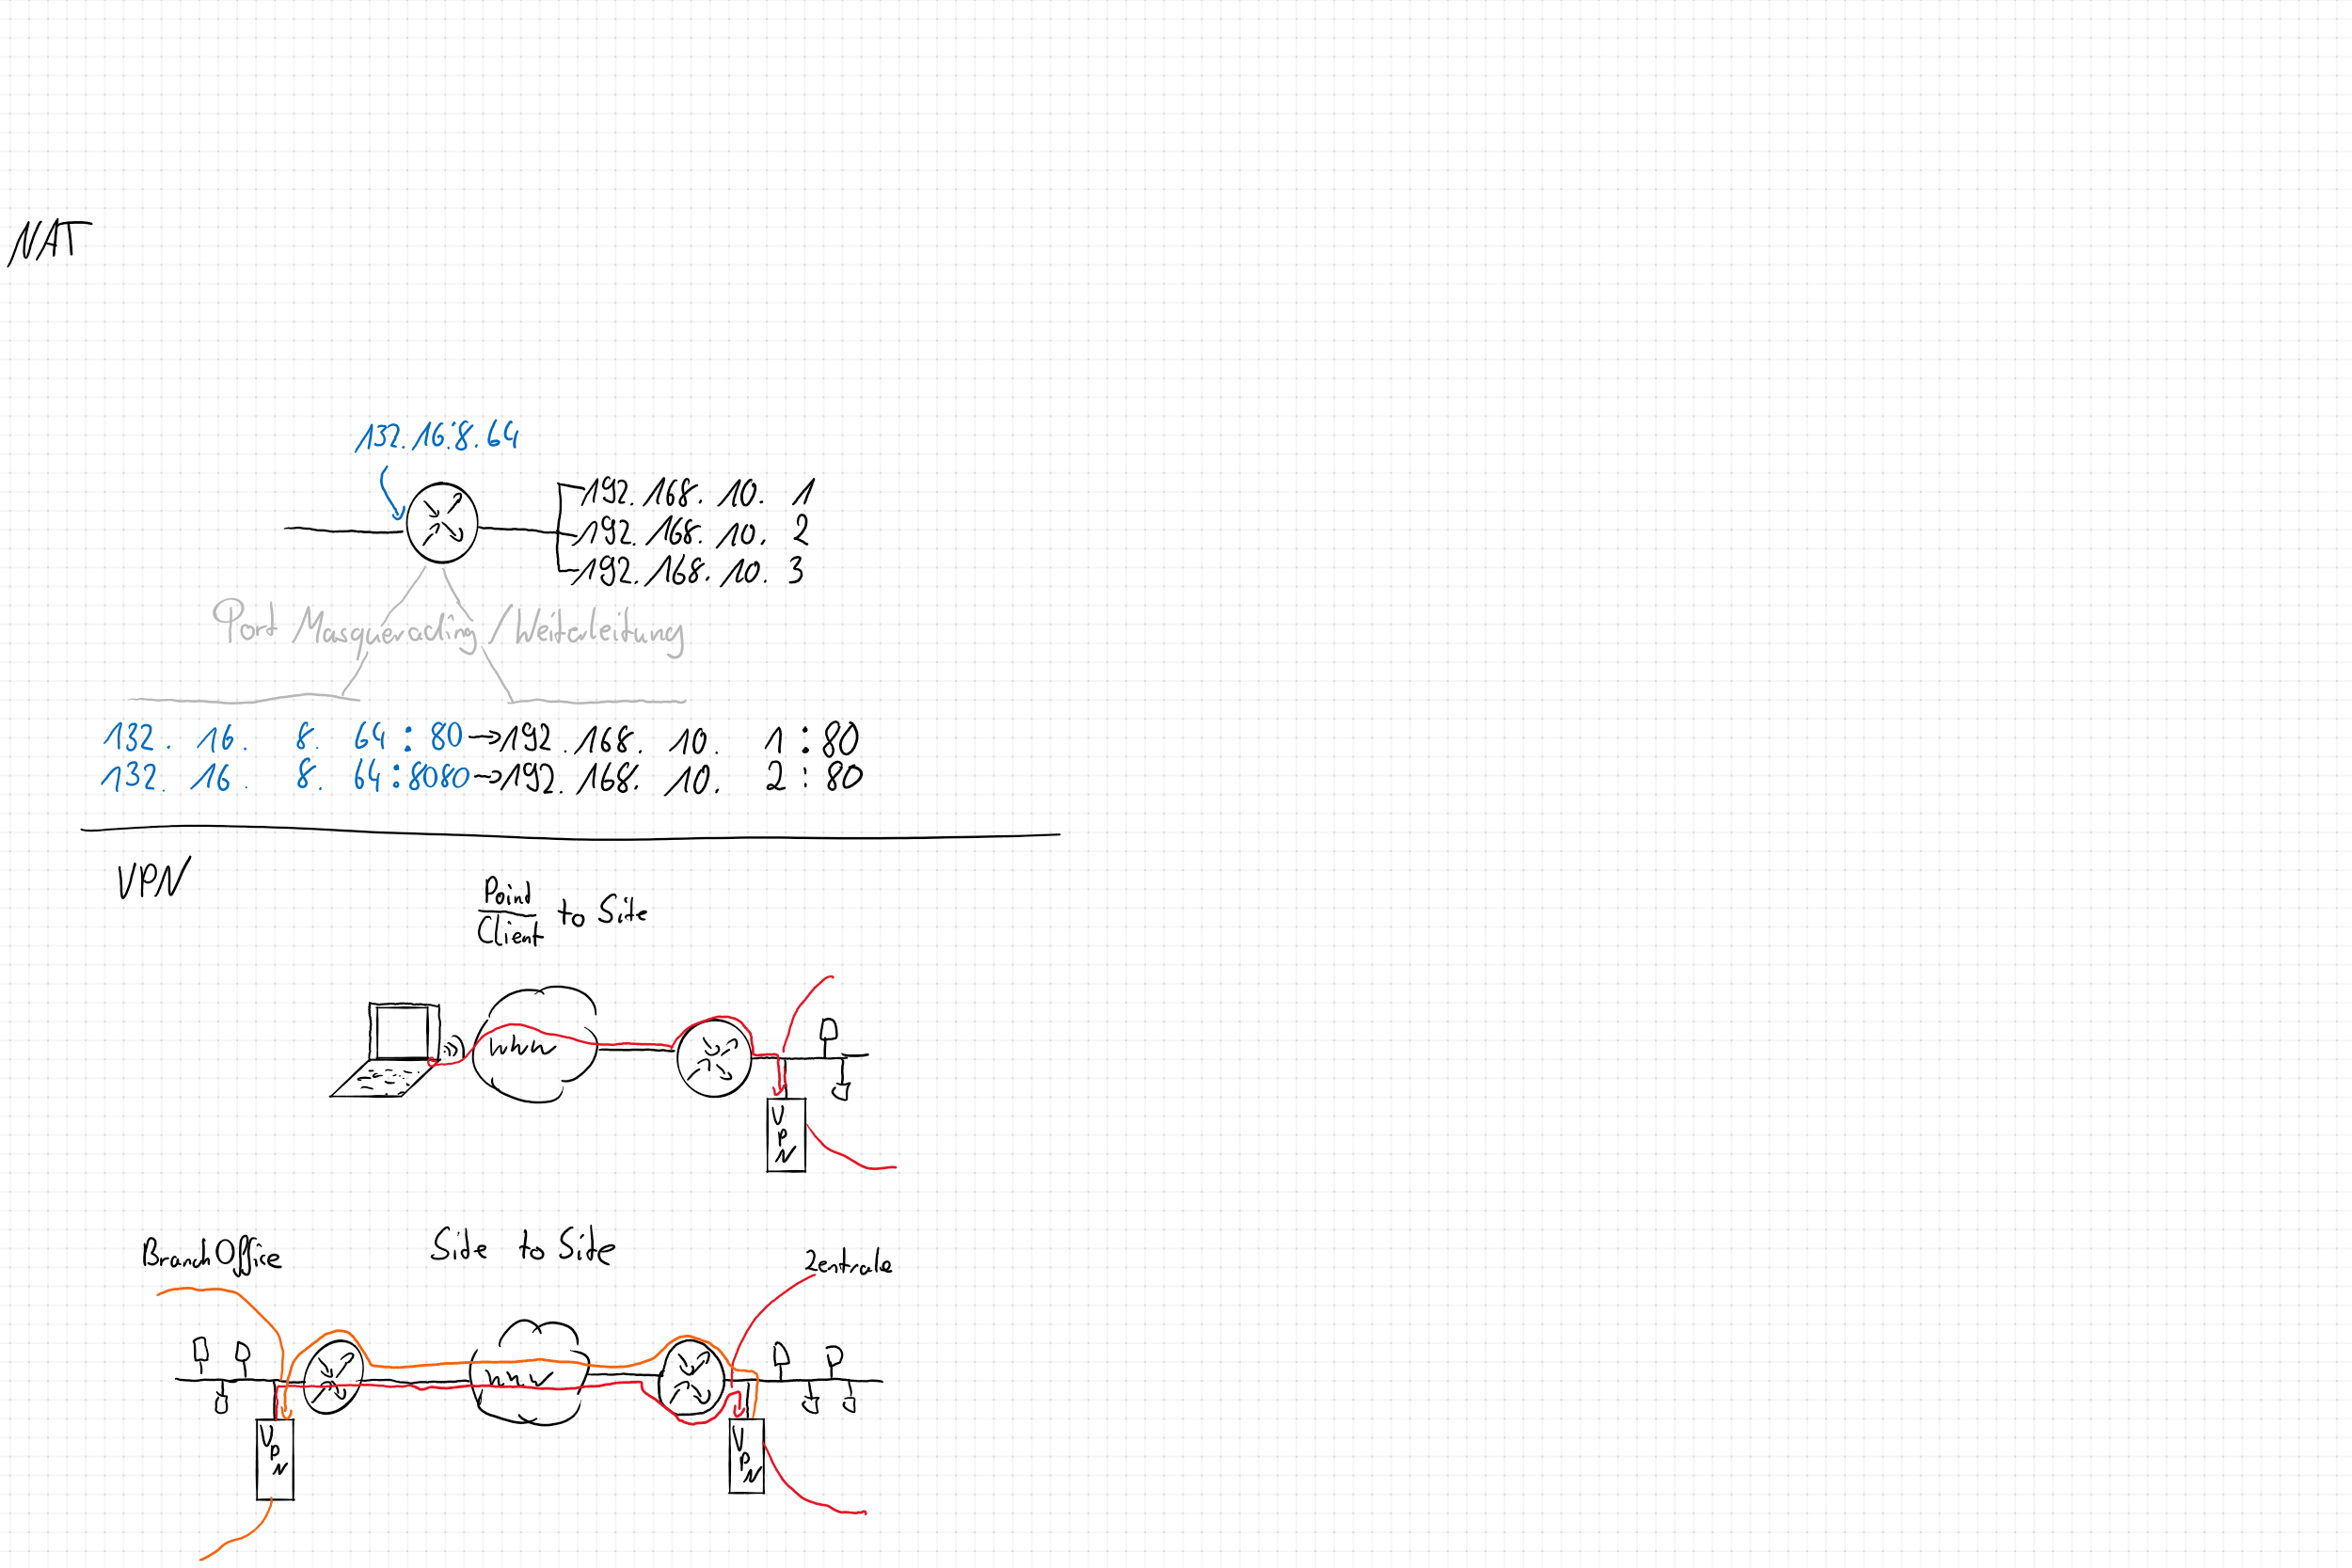 NAT
132.16.8.64
192.168.10. 1
192.168.10. 2
192.168.10. 3
Port Masquerading / Weiterleitung
132. 16. 8. 64 : 80 → 192.168. 10. 1 : 80
132. 16. 8. 64 : 8080 → 192.168. 10. 2 : 80
VPN
Poind
Client to Site
www
VPN
Branch Office
Side to Side
Zentrale
www
VPN
VPN